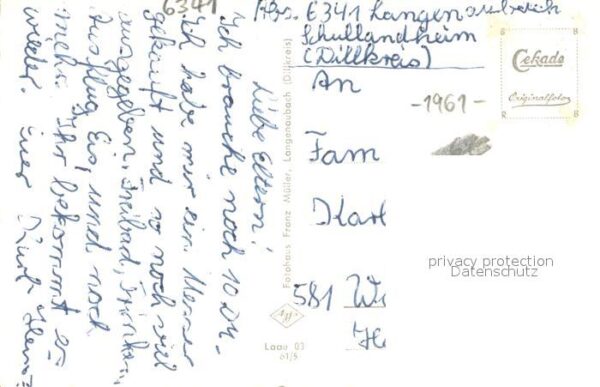 6341
Abs. 6341 Langenaubach
Schullandheim
(Dillkreis)
An
Fam
Karl
581 Wi
He
-1961-
Cekade
Originalfoto
R R
8 8
privacy protection
Datenschutz
Fotohaus Franz Müller, Langenaubach (Dillkreis)
Agfa
Laau 03
61/5
Liebe Eltern!
Ich brauche noch 10 DM.
Ich habe mir ein Messer
gekauft und so noch viel
ausgegeben. Freibad, Trinken,
Ausflug Eis, und noch
mehr. Ihr bekommt es
wieder. Euer